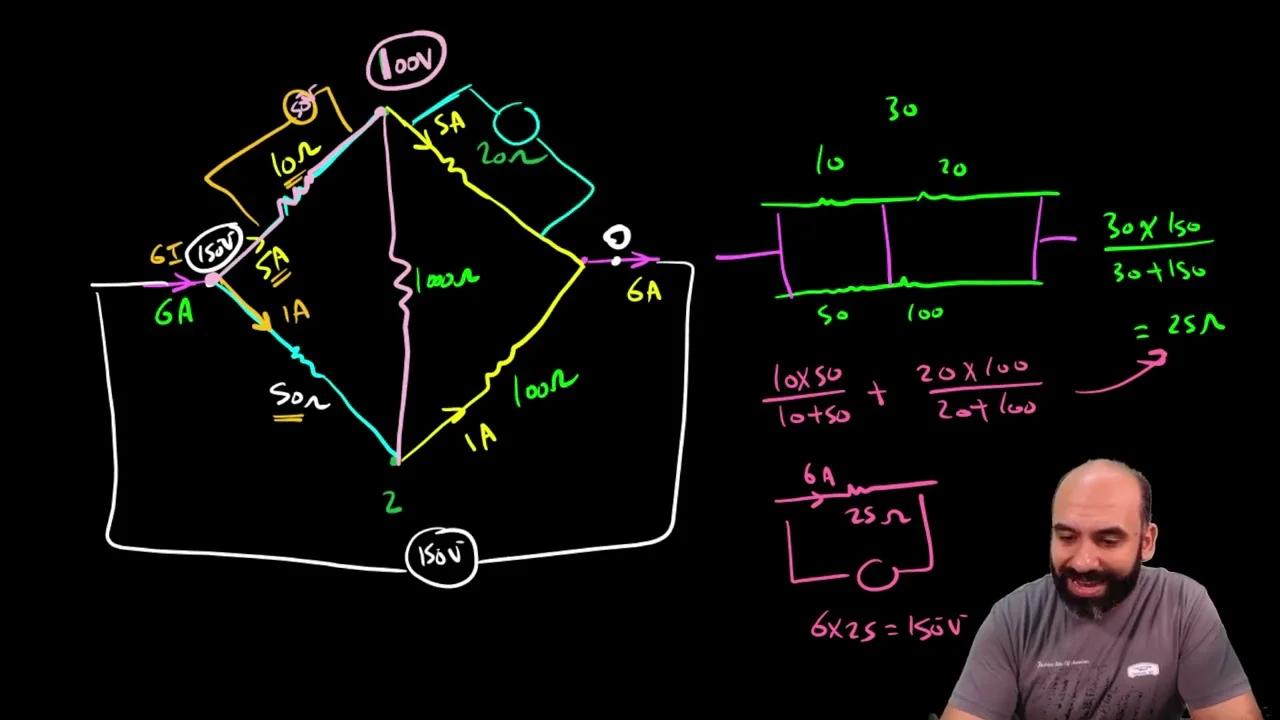 100V
50V
10Ω
5A
20Ω
6I
150V
5A
6A
1A
1000Ω
0
6A
50Ω
100Ω
1A
2
150V
30
10
20
50
100
30 x 150
30 + 150
= 25Ω
10x50
10+50
+
20 x 100
20 + 100
6A
25Ω
6x25 = 150V